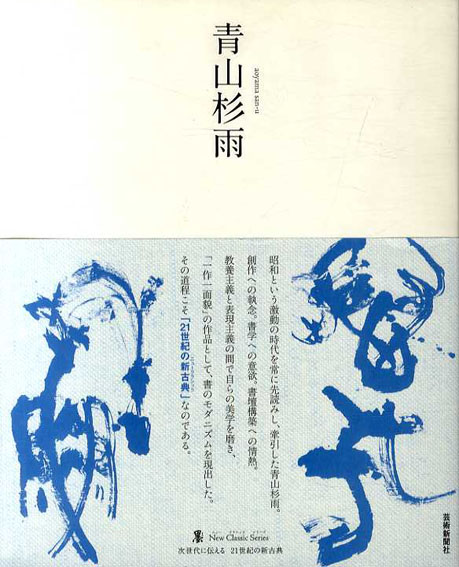 青山杉雨
aoyama san-u
昭和という激動の時代を常に先読みし、牽引した青山杉雨。
創作への執念。書学への意欲。書壇構築への情熱。
教養主義と表現主義の間で自らの美学を磨き、
「一作一面貌」の作品として、書のモダニズムを現出した。
その道程こそ「21世紀の新古典」なのである。
ニュー クラシック シリーズ
New Classic Series
次世代に伝える 21世紀の新古典
芸術新聞社